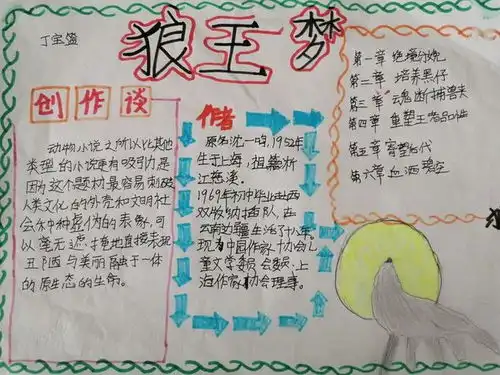 狼王梦
丁宝简
创作谈
动物小说之所以比其他
类型的小说更有吸引力是
因为这个题材最容易刺破
人类文化的外壳和文明社
会尔中种虚伪的表象,可
以毫无遮掩地直接表现
丑陋与美丽融于一体
的原生态的生命。
作者
原名沈一鸣,1952年
生于上海,祖籍浙
江慈溪。
1969年初中毕业赴西
双版纳插队,在
云南边疆生活了十八年。
现为中国作家协会儿
童文学委员会委员、上
海作家协会理事。
第一章 绝境分娩
第二章 培养黑仔
第三章 魂断捕兽夹
第四章 重塑王者品格
第五章 寄望后代
第六章 血洒碧空